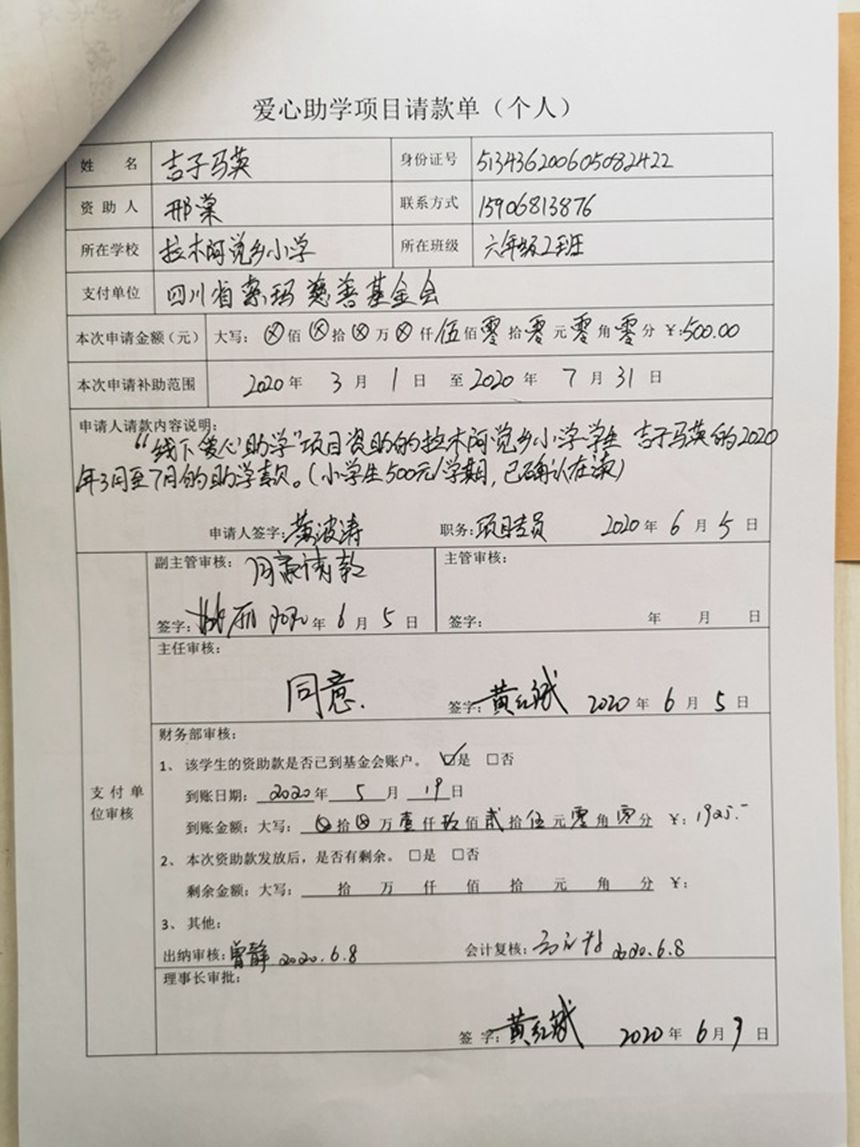 爱心助学项目请款单（个人）
姓 名 吉子马英 身份证号 513436200605082422
资助人 邢棠 联系方式 15906813876
所在学校 拉木阿觉乡小学 所在班级 六年级2班
支付单位 四川省索玛慈善基金会
本次申请金额（元） 大写：ⓧ佰ⓧ拾ⓧ万ⓧ仟伍佰零拾零元零角零分 ￥:500.00
本次申请补助范围 2020年 3月 1日 至2020年 7月31日
申请人请款内容说明：
“线下爱心助学”项目资助的拉木阿觉乡小学学生 吉子马英的2020
年3月至7月的助学款。(小学生500元/学期，已确认在读)
申请人签字：黄波涛 职务：项目专员 2020年6月5日
副主管审核： 同意请款 主管审核：
签字： 丽 2020年6月5日 签字： 年 月 日
主任审核：
同意.
签字：黄红斌 2020年6月5日
支付单位审核
财务部审核：
1、 该学生的资助款是否已到基金会账户。 ☑是 □否
到账日期： 2020年 5月 19日
到账金额：大写：ⓧ拾ⓧ万壹仟玖佰贰拾伍元零角零分 ￥：1925.-
2、 本次资助款发放后，是否有剩余。□是 □否
剩余金额：大写： 拾 万 仟 佰 拾 元 角 分 ￥：
3、 其他：
出纳审核：曾静 2020.6.8 会计复核： 2020.6.8
理事长审批：
签 字：黄红斌 2020年6月9日